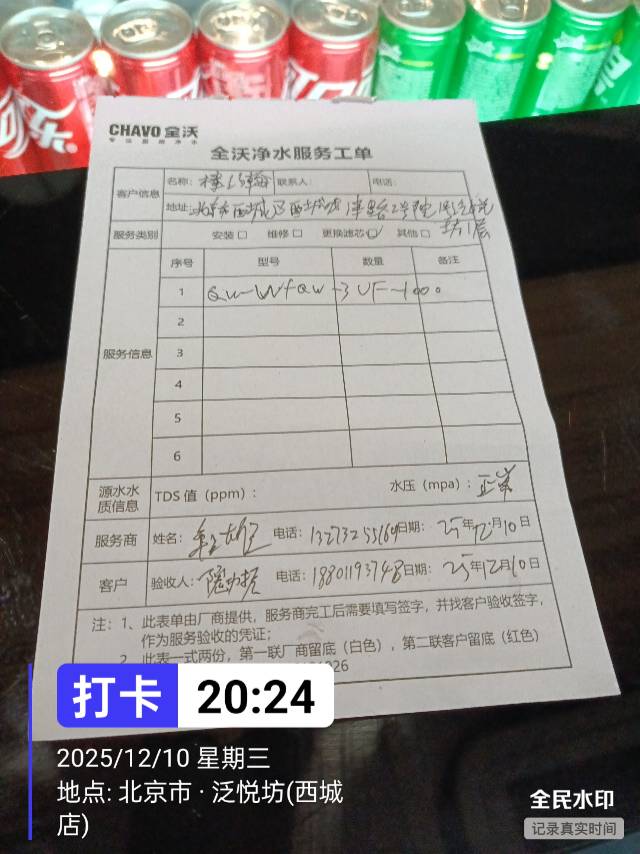 CHAVO 全沃
专注商用净水
全沃净水服务工单
客户信息
名称: 联系人: 电话:
地址: 北京市西城区西城
服务类别 安装□ 维修□ 更换滤芯☑ 其他□
1层
服务信息
序号 型号 数量 备注
1 QW-WFQW-3 UF-1000
2
3
4
5
6
源水水质信息 TDS 值（ppm）: 水压（mpa）: 正常
服务商 姓名: 电话: 13273255164 日期: 25年12月10日
客户 验收人: 电话: 18801193748 日期: 25年12月10日
注: 1、此表单由厂商提供，服务商完工后需要填写签字，并找客户验收签字，
作为服务验收的凭证；
2、此表一式两份，第一联厂商留底（白色），第二联客户留底（红色）
打卡 20:24
2025/12/10 星期三
地点: 北京市 · 泛悦坊(西城
店)
全民水印
记录真实时间